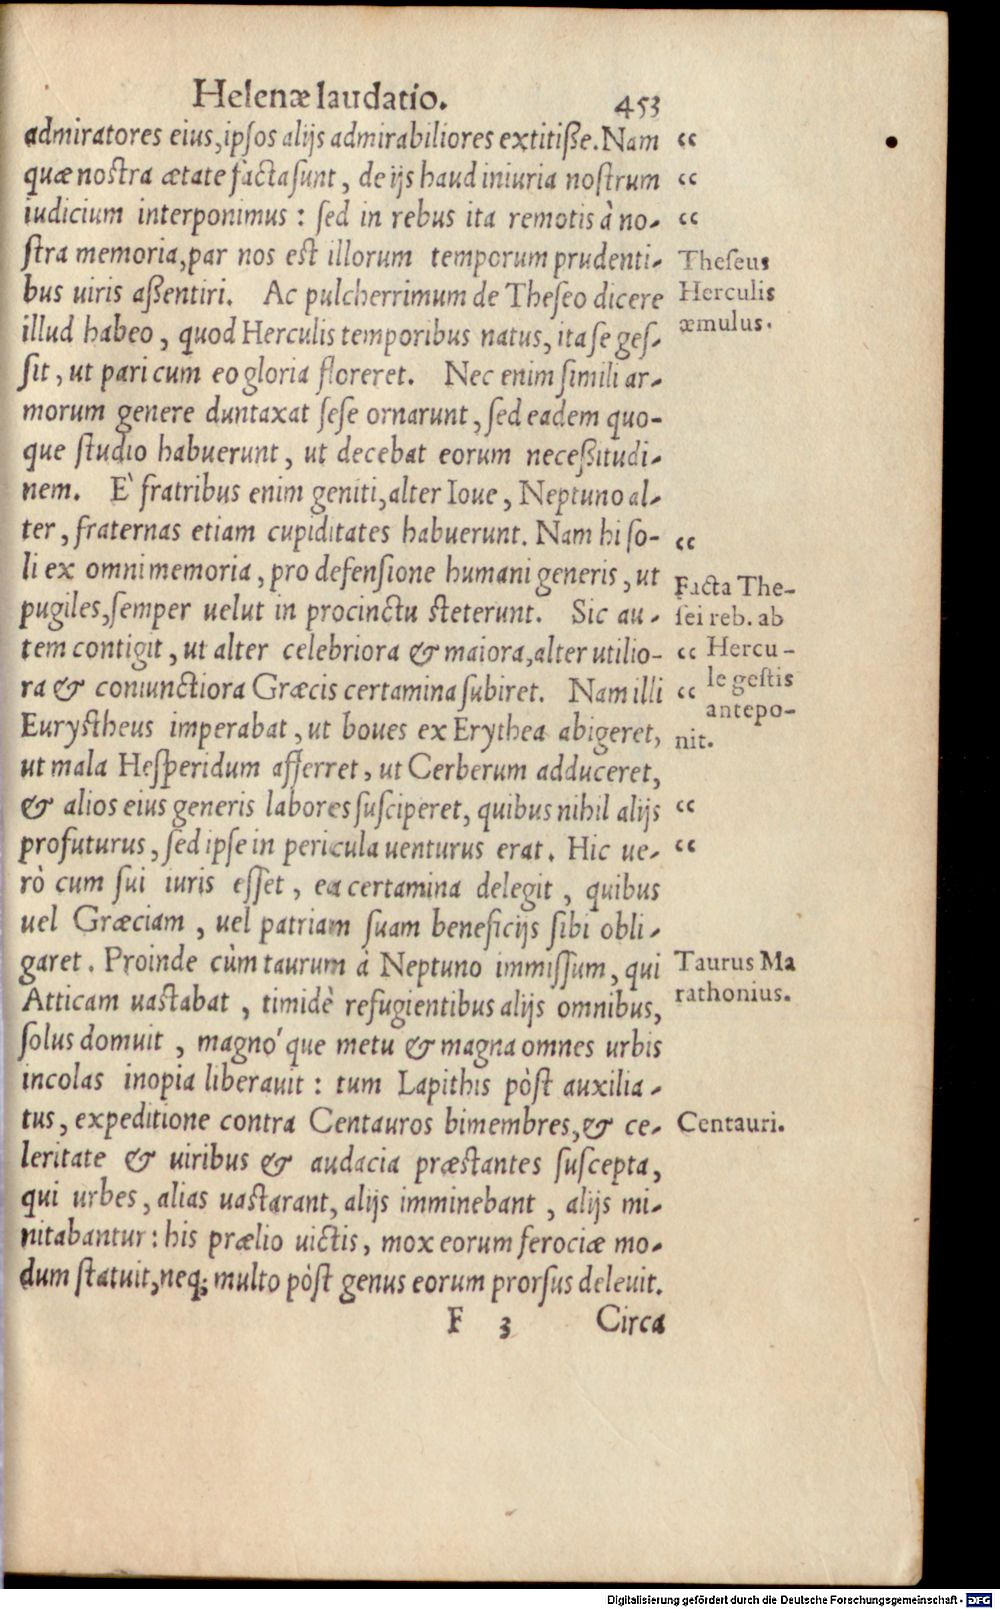 Helenæ laudatio. 453
admiratores eius, ipsos alijs admirabiliores extitiße. Nam
quæ nostra ætate facta sunt, de ijs haud iniuria nostrum
iudicium interponimus: sed in rebus ita remotis à no-
stra memoria, par nos est illorum temporum prudenti-
bus uiris aßentiri. Ac pulcherrimum de Theseo dicere
illud habeo, quod Herculis temporibus natus, ita se ges-
sit, ut pari cum eo gloria floreret. Nec enim simili ar-
morum genere duntaxat sese ornarunt, sed eadem quo-
que studio habuerunt, ut decebat eorum neceßitudi-
nem. E' fratribus enim geniti, alter Ioue, Neptuno al-
ter, fraternas etiam cupiditates habuerunt. Nam hi so-
li ex omni memoria, pro defensione humani generis, ut
pugiles, semper uelut in procinctu steterunt. Sic au-
tem contigit, ut alter celebriora & maiora, alter utilio-
ra & coniunctiora Græcis certamina subiret. Nam illi
Eurystheus imperabat, ut boues ex Erythea abigeret,
ut mala Hesperidum afferret, ut Cerberum adduceret,
& alios eius generis labores susciperet, quibus nihil alijs
profuturus, sed ipse in pericula uenturus erat. Hic ue-
rò cum sui iuris esset, ea certamina delegit, quibus
uel Græciam, uel patriam suam beneficijs sibi obli-
garet. Proinde cùm taurum à Neptuno immissum, qui
Atticam uastabat, timidè refugientibus alijs omnibus,
solus domuit, magnó que metu & magna omnes urbis
incolas inopia liberauit: tum Lapithis pòst auxilia-
tus, expeditione contra Centauros bimembres, & ce-
leritate & uiribus & audacia præstantes suscepta,
qui urbes, alias uastarant, alijs imminebant, alijs mi-
nitabantur: his prælio uictis, mox eorum ferociæ mo-
dum statuit, neq; multo pòst genus eorum prorsus deleuit.
F 3 Circa
“
“
“
Theseus
Herculis
æmulus.
“
Facta The-
sei reb. ab
“ Hercu-
“ le gestis
antepo-
nit.
“
“
Taurus Ma
rathonius.
Centauri.
Digitalisierung gefördert durch die Deutsche Forschungsgemeinschaft - DFG